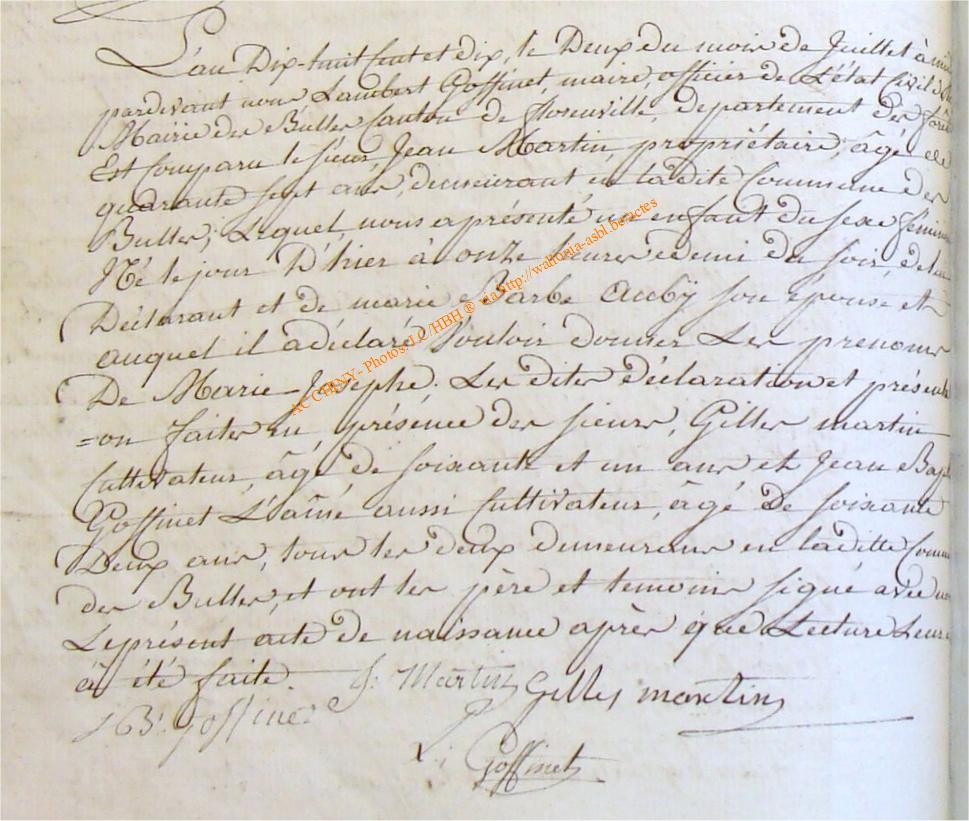 L'an Dix-huit Cent et dix, le Deux du mois de Juillet à midi
pardevant nous Lambert Goffinet, maire, officier de L'état Civil de la
Mairie des Bulles Canton de florenville, departement des forêts
Est Comparu le sieur, Jean Martin, propriétaire, âgé de
quarante sept ans, demeurant en ladite Commune des
Bulles, Lequel nous a présenté un enfant du sexe féminin
Né le jour D'hier à onze heures et demi du soir, de lui
Déclarant et de marie Barbe Auby son épouse et
auquel il a déclaré Vouloir donner Les prenoms
De Marie-Josephe. Les dites déclaration et présenta
=on faites en présence des sieurs, Gilles martin
Cultivateur, âgé de soixante et un ans et Jean Bap
Goffinet L'aîné aussi Cultivateur, âgé de soixante
Deux ans, tous les deux demeurans en ladite Comm
des Bulles, et ont les père et temoins signé avec nous
Le présent acte de naissance après que Lecture Leur
à été faite. J: Martin Gilles martin
J B: Goffinet
L: Goffinet
AC CHINY - Photos: LC/HBH ® via http://walloria-asbl.be/actes